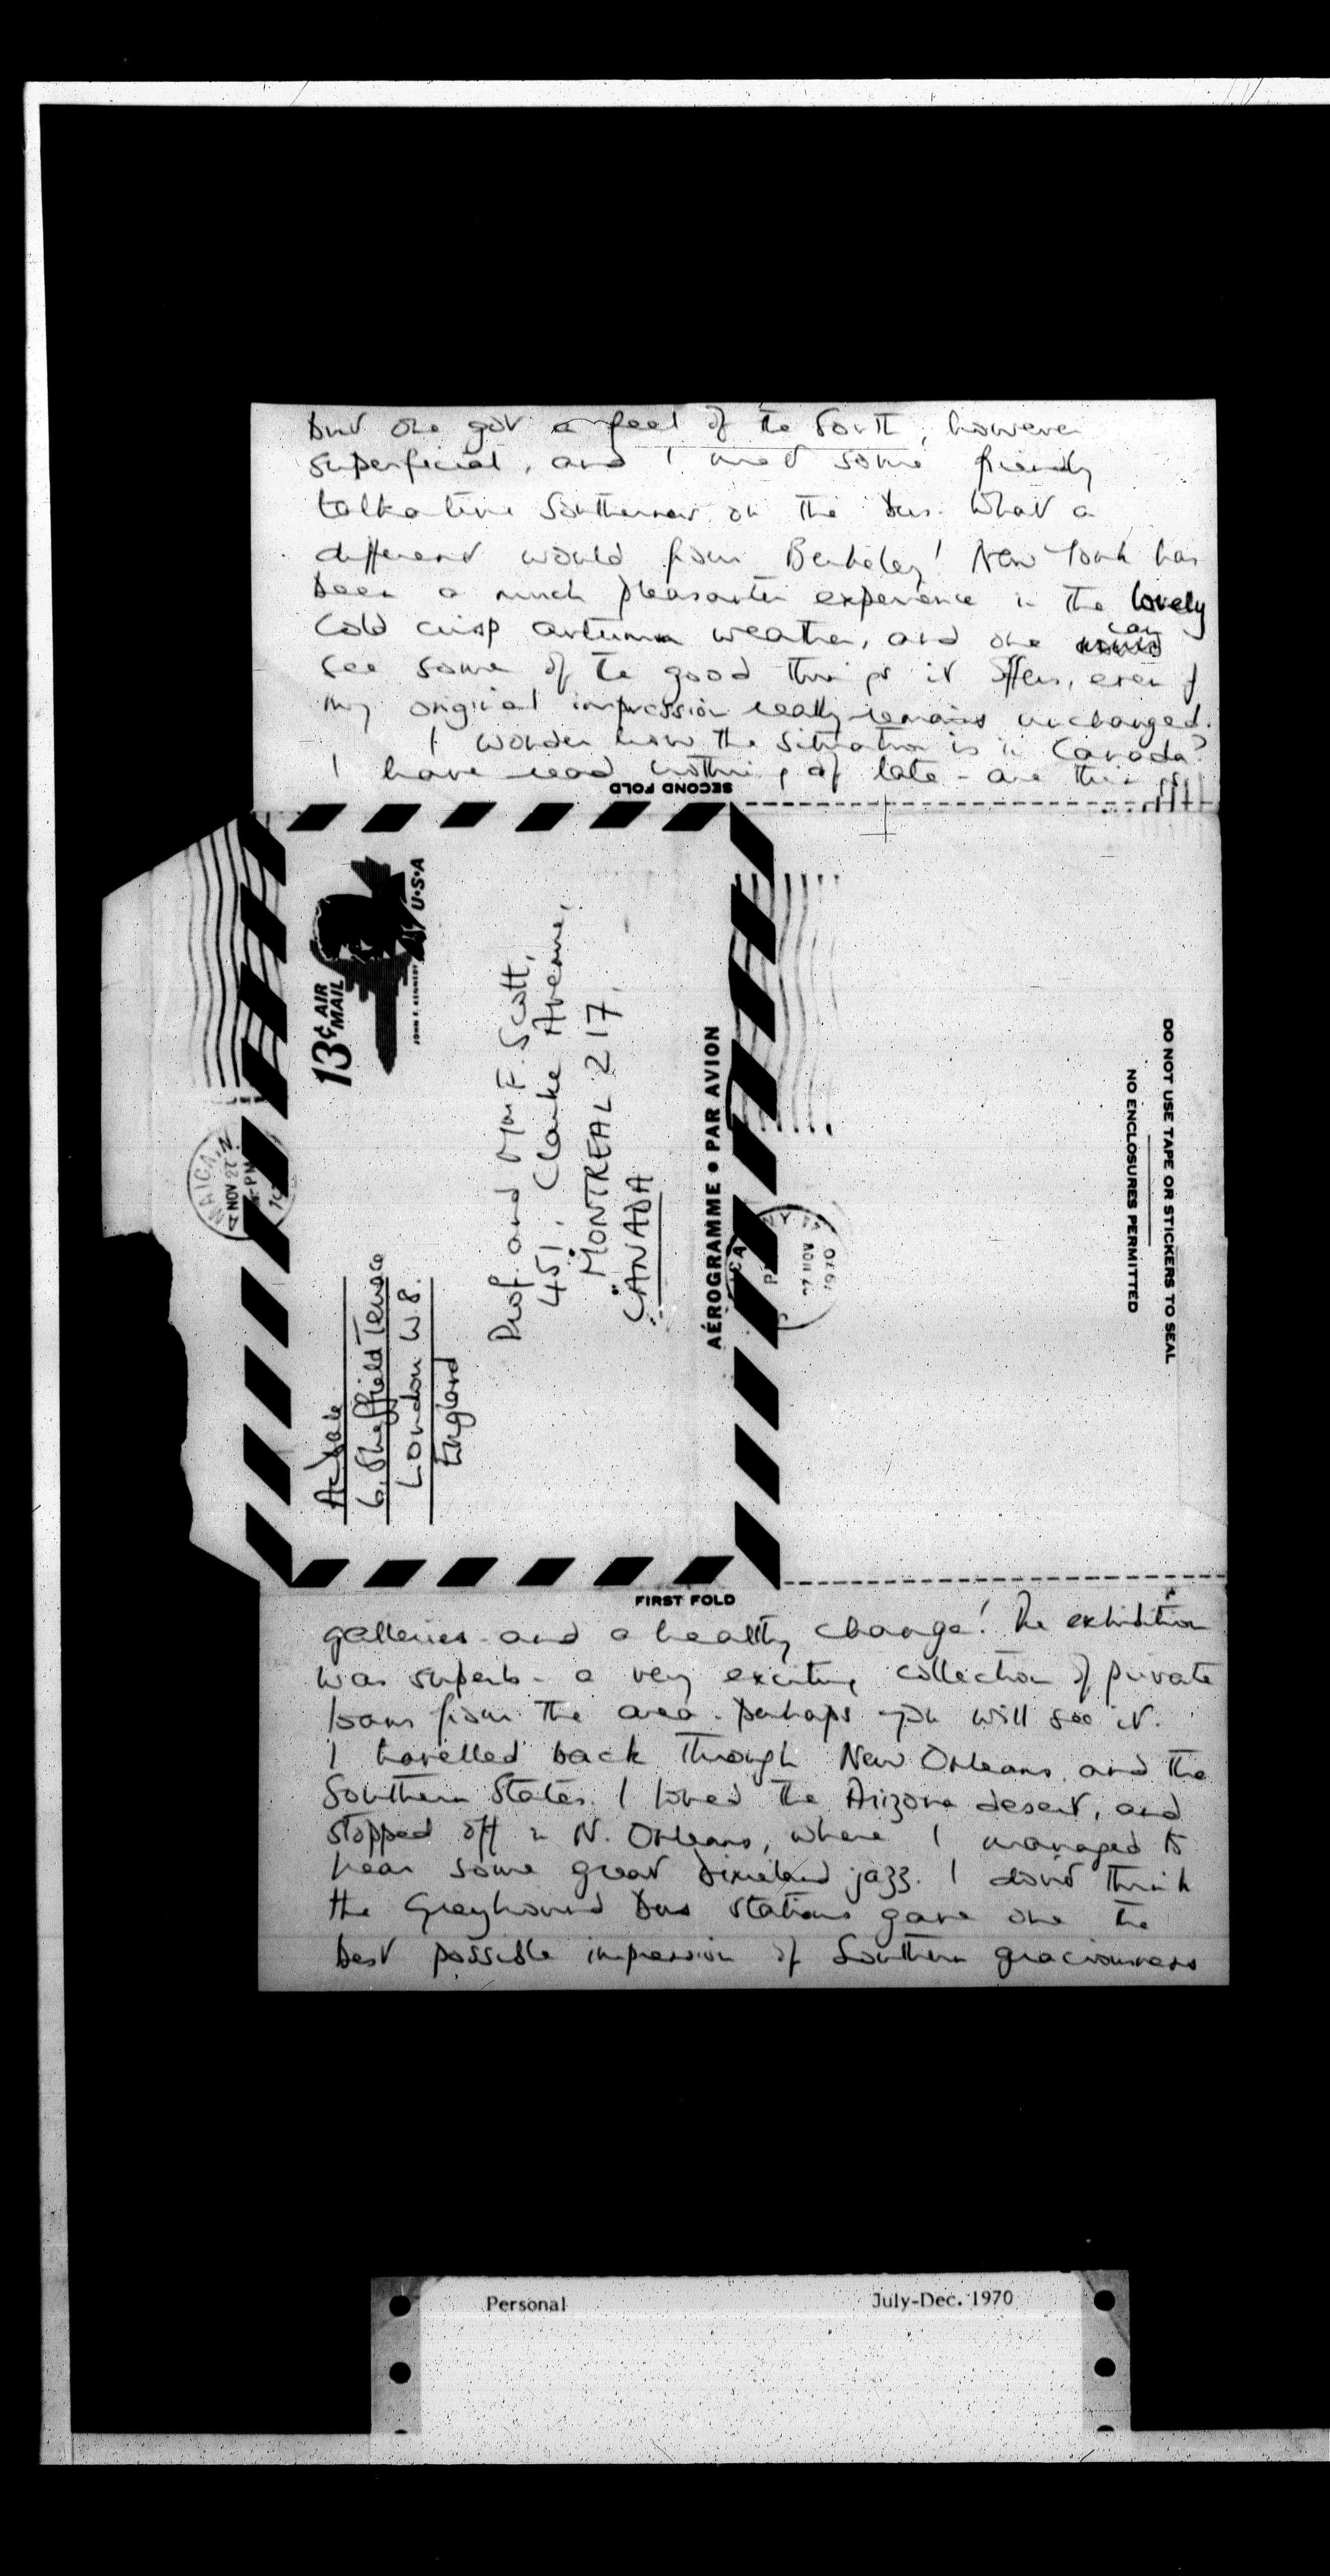 but one got a feel of the South, however
superficial, and I met some friendly
talkative Southerners on the bus. What a
different would from Berkeley! New York has
been a much pleasanter experience in the lovely
cold crisp autumn weather, and one can
see some of the good things it offers, even if
my original impression really remains unchanged.
I wonder how the situation is in Canada?
I have read nothing of late - are things
SECOND FOLD
13¢ AIR
MAIL
JOHN F. KENNEDY
U·S·A
MAICA, N
NOV 27
PM
19
6. Sheffield Terrace
London W. 8.
England
Prof. and Mrs F. Scott,
451, Clarke Avenue,
MONTREAL 217,
CANADA
AÉROGRAMME • PAR AVION
CA
NY
P
NOV 27
1970
DO NOT USE TAPE OR STICKERS TO SEAL
NO ENCLOSURES PERMITTED
FIRST FOLD
galleries - and a healthy change! The exhibition
was superb - a very exciting collection of private
loans from the area. Perhaps you will see it.
I travelled back through New Orleans and the
Southern States. I loved the Arizona desert, and
stopped off in N. Orleans, where I managed to
hear some great Dixieland jazz. I don't think
the Greyhound bus stations gave one the
best possible impression of Southern graciousness
Personal
July-Dec. 1970